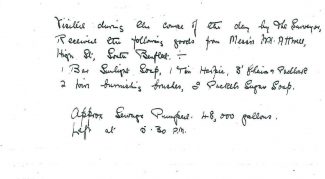 Visited during the course of the day by the Surveyor,
Received the following goods from Messrs
High St, South Benfleet :-
1 Bar Sunlight Soap, 1 Tin Harpic, 8' Chain & Padlock
2 burnishing brushes, 2 Packets Sugar Soap.
Approx Sewage Pumped. 48,000 gallons.
Left at 5.30 P.M.